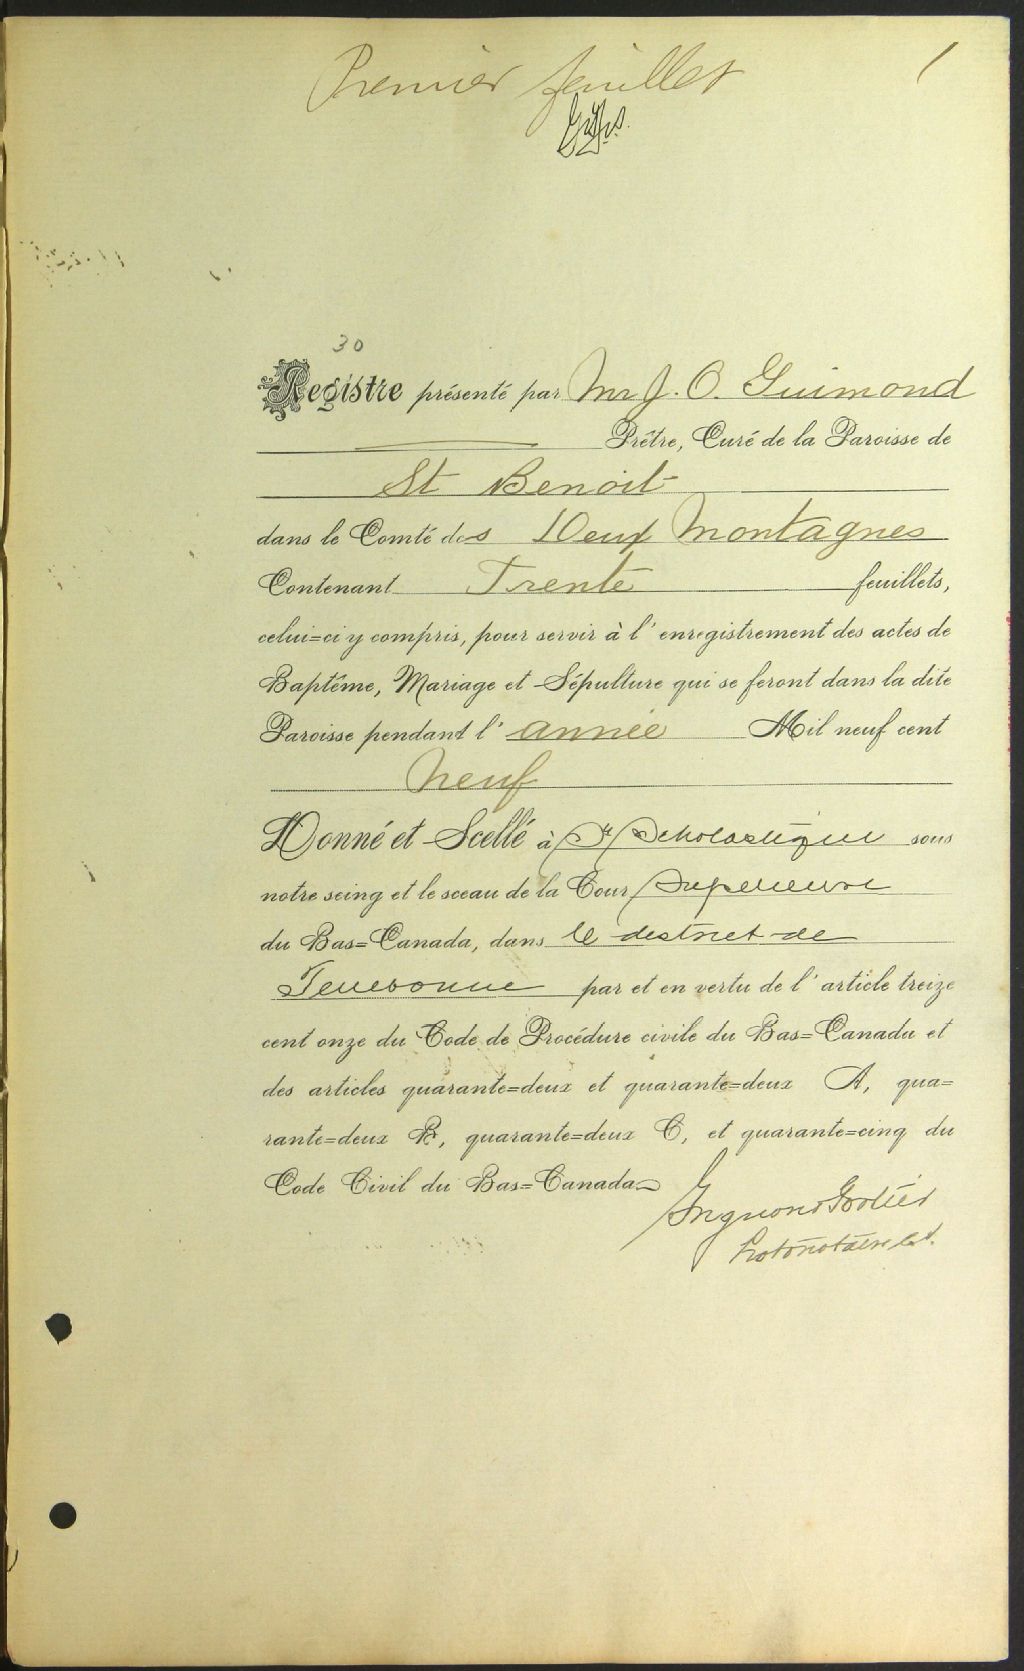 Premier feuillet
1
30
Registre présenté par Mr J. O. Guimond
Prêtre, Curé de la Paroisse de
St Benoit
dans le Comté des Deux Montagnes
Contenant Trente feuillets,
celui=ci y compris, pour servir à l'enregistrement des actes de
Baptême, Mariage et Sépulture qui se feront dans la dite
Paroisse pendant l'année Mil neuf cent
Neuf
Donné et Scellé à Ste Scholastique sous
notre seing et le sceau de la Cour Superieure
du Bas=Canada, dans le district de
Terrebonne par et en vertu de l'article treize
cent onze du Code de Procédure civile du Bas=Canada et
des articles quarante=deux et quarante=deux A, qua=
rante=deux B, quarante=deux C, et quarante=cinq du
Code Civil du Bas=Canada
Protonotaire